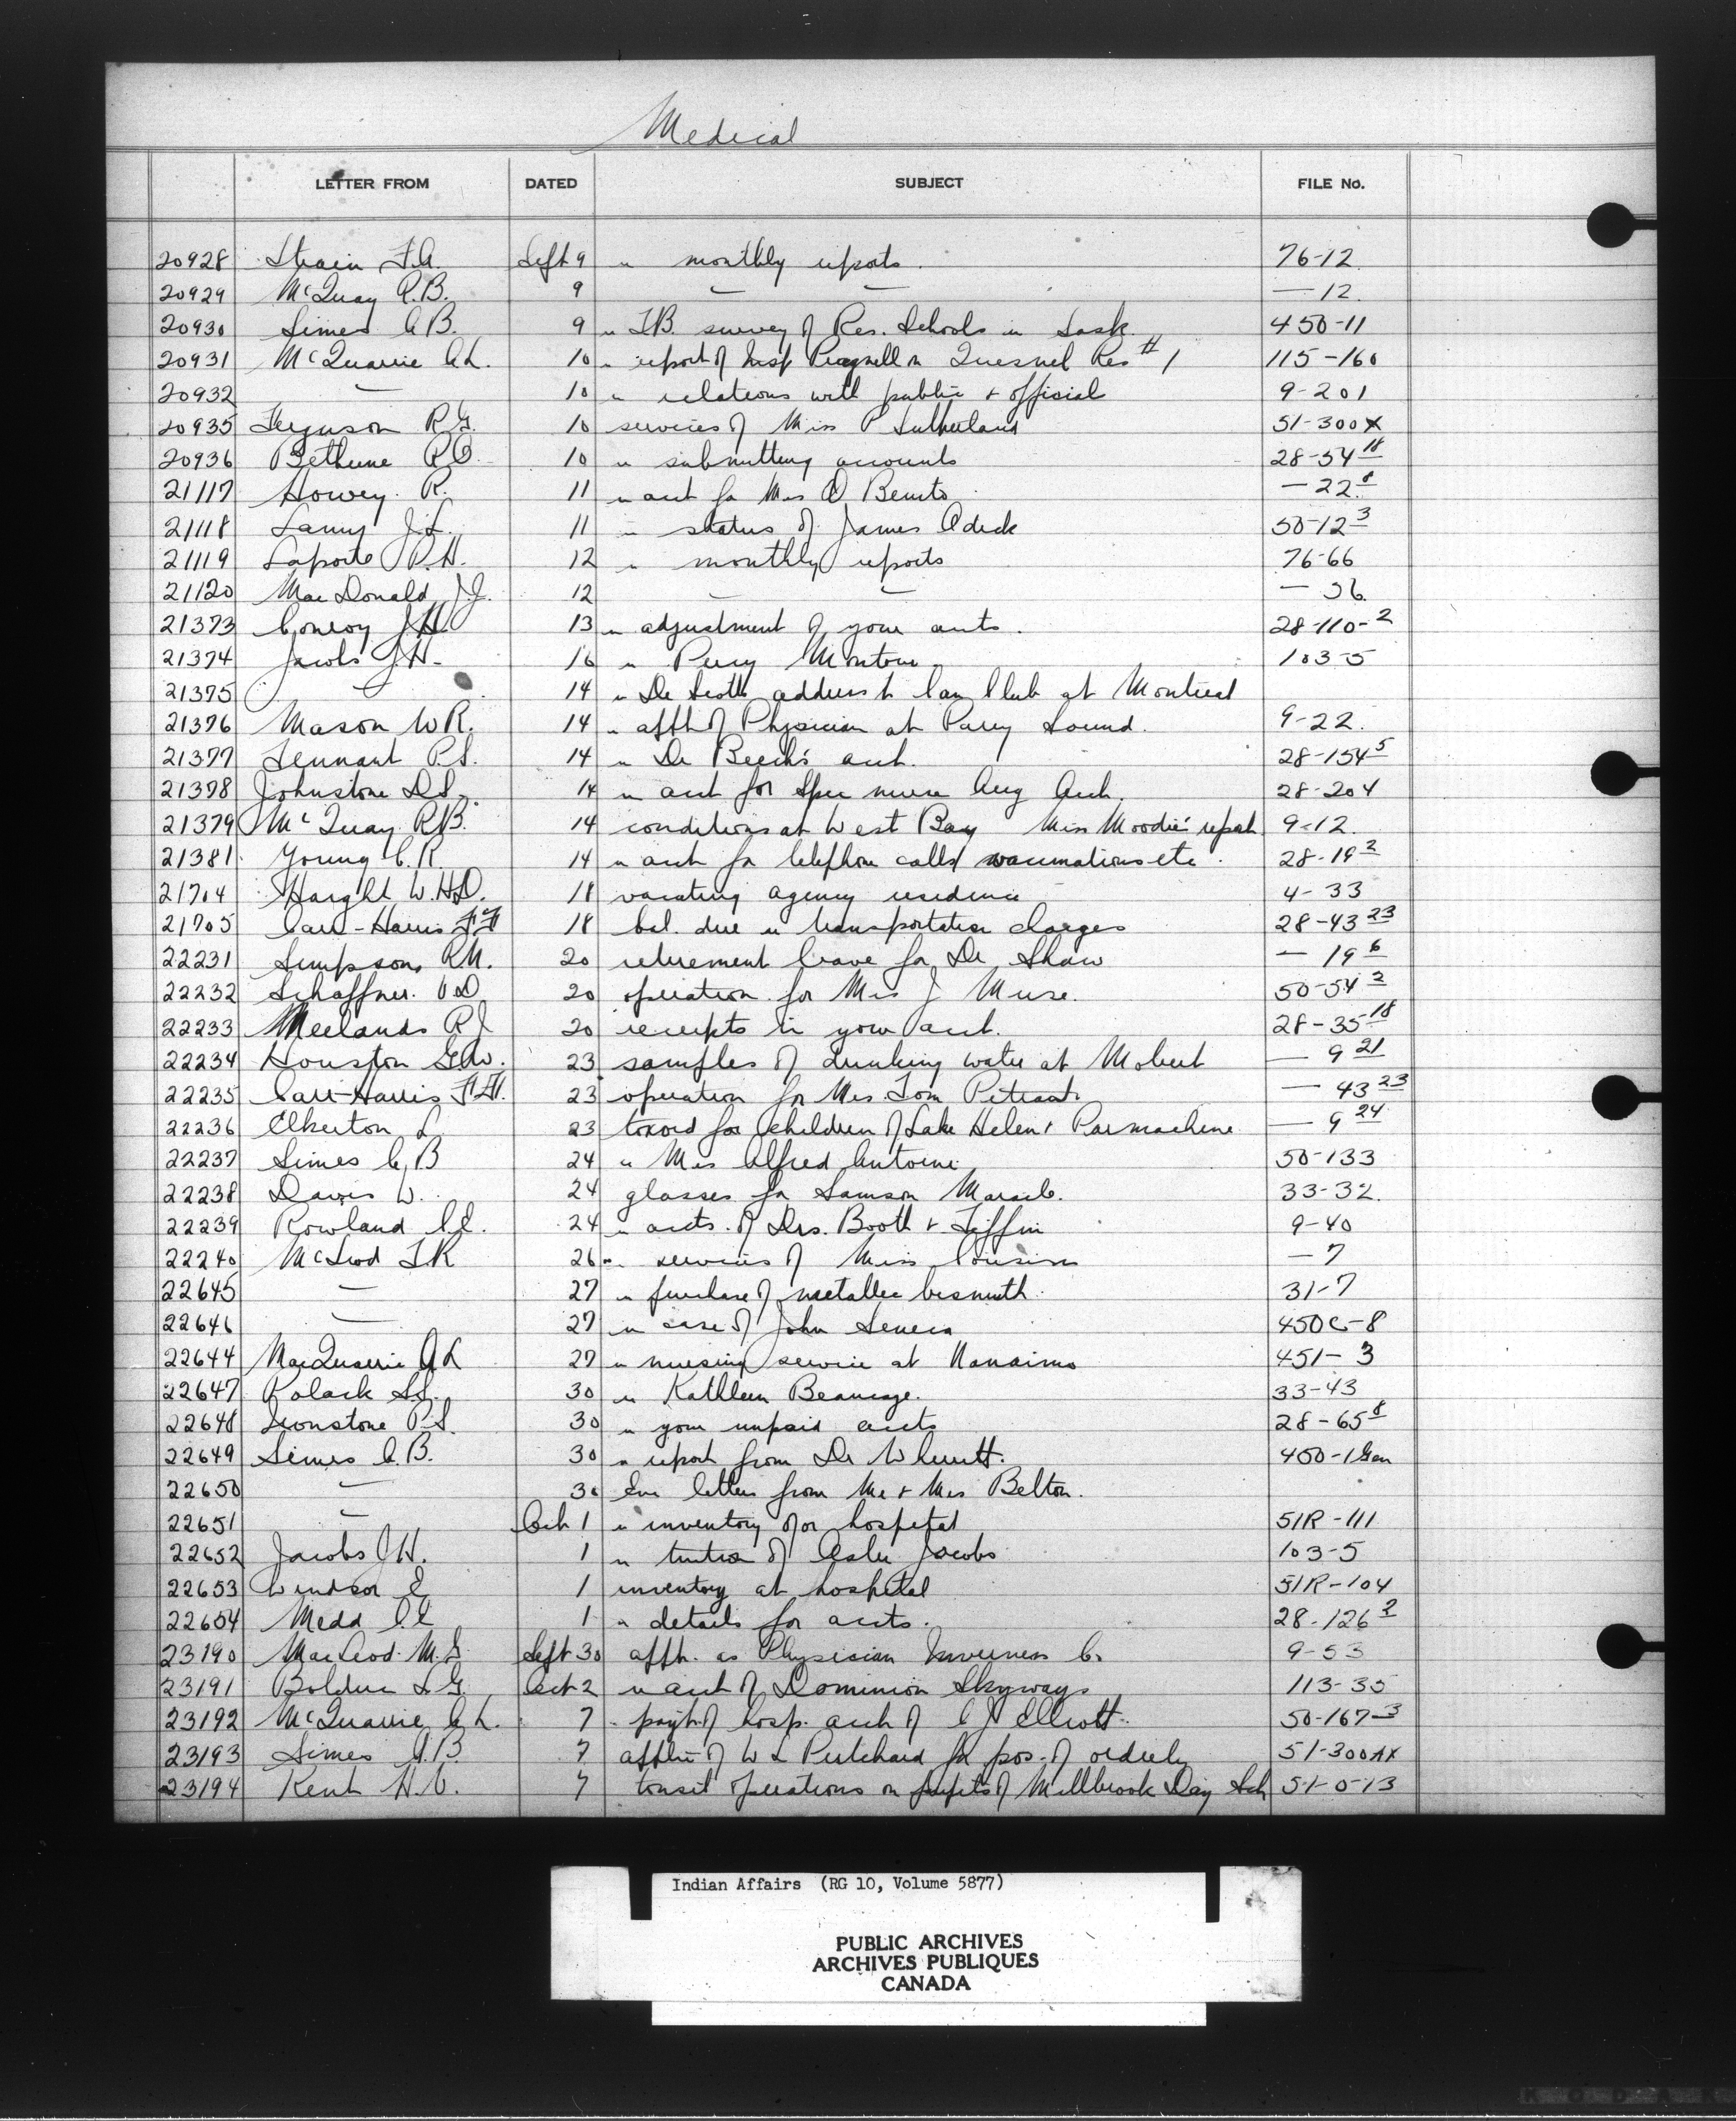 Medical
LETTER FROM DATED SUBJECT FILE No.
20928 Strain F.A. Sept 9 " monthly reports. 76-12
20929 McQuay R.B. 9 — — — 12.
20930 Simes A.B. 9 " T.B. survey of Res. Schools in Sask. 450-11
20931 McQuarrie A.L. 10 " report of Insp on Quesnel Res # 1 115-160
20932 — 10 " relations with public + official 9-201
20935 Ferguson R.G. 10 services of Miss P Sutherland 51-300X
20936 Bethune R.O. 10 " submitting accounts 28-54 18
21117 Howey R. 11 " acct for Mrs Benito — 22.8
21118 J.L. 11 " status of James 50-12 3
21119 Laporte P.H. 12 " monthly reports 76-66
21120 MacDonald J.J. 12 — — — 36.
21373 Conroy J.H. 13 " adjustment of your accts. 28-110-2
21374 Jacobs J.H. 16 " Percy Montour 103-5
21375 — 14 " Dr Scott address to Can Club at Montreal
21376 Mason W.R. 14 " appt of Physician at Parry Sound. 9-22.
21377 Tennant P.S. 14 " Dr Beech's acct. 28-154 5
21378 Johnstone D.S. 14 " acct for Spec nurse Aug Arch. 28-204
21379 McQuay R.B. 14 conditions at West Bay Miss Moodie's report 9-12.
21381 Young C.R. 14 " acct for telephone calls vaccinations etc. 28-19 2
21704 Haight W.H.D. 18 vacating agency residence 4-33
21705 Carr-Harris F.F. 18 bal. due " transportation charges 28-43 23
22231 Simpson R.M. 20 retirement leave for Dr Shaw — 19 6
22232 Schaffner V.D. 20 operation for Mrs J Muse. 50-54 3
22233 Meelands R J 20 receipts in your acct. 28-35 18
22234 Houston G.W. 23 samples of drinking water at Mobert — 9 21
22235 Carr-Harris F.F. 23 operation for Mrs Tom — 43 23
22236 Elkerton L 23 toxoid for children of Lake Helen + Parmachene — 9 24
22237 Simes A B 24 " Mrs Alfred Antoine 50-133
22238 Davis W. 24 glasses for Samson 33-32.
22239 Rowland C.E. 24 " accts. of Drs. Booth + Tiffin 9-40
22240 McLeod T.R 26 " services of Miss Cousins — 7
22645 — 27 " purchase of metallic bismuth. 31-7
22646 — 27 " case of John Seneca 450C-8
22644 MacQuarrie A L 27 " nursing service at Nanaimo 451-3
22647 Polack S.S. 30 " Kathleen Beaucage. 33-43
22648 Ironstone P.S. 30 " your unpaid accts 28-65 8
22649 Simes A.B. 30 " report from Dr Wherrett. 450-1 Gen
22650 — 30 Enc letters from Mr + Mrs Belton.
22651 — Oct 1 " inventory of or hospital 51R-111
22652 Jacobs J.H. 1 " tuition of Jacobs 103-5
22653 Windsor E 1 inventory at hospital 51R-104
22654 Medd A.E 1 " details for accts. 28-126 2
23190 MacLeod M.G. Sept 30 appt. as Physician Inverness Co 9-53
23191 Bolduc L G. Oct 2 " acct of Dominion Skyways 113-35
23192 McQuarrie A.L. 7 " paymt of hosp. acct of C J Elliott. 50-167-3
23193 Simes A.B. 7 appltn of W L Pritchard for pos. of orderly 51-300AX
23194 Kent H.V. 7 tonsil operations on pupils of Millbrook Day Sch 51-0-13
Indian Affairs (RG 10, Volume 5877)
PUBLIC ARCHIVES
ARCHIVES PUBLIQUES
CANADA